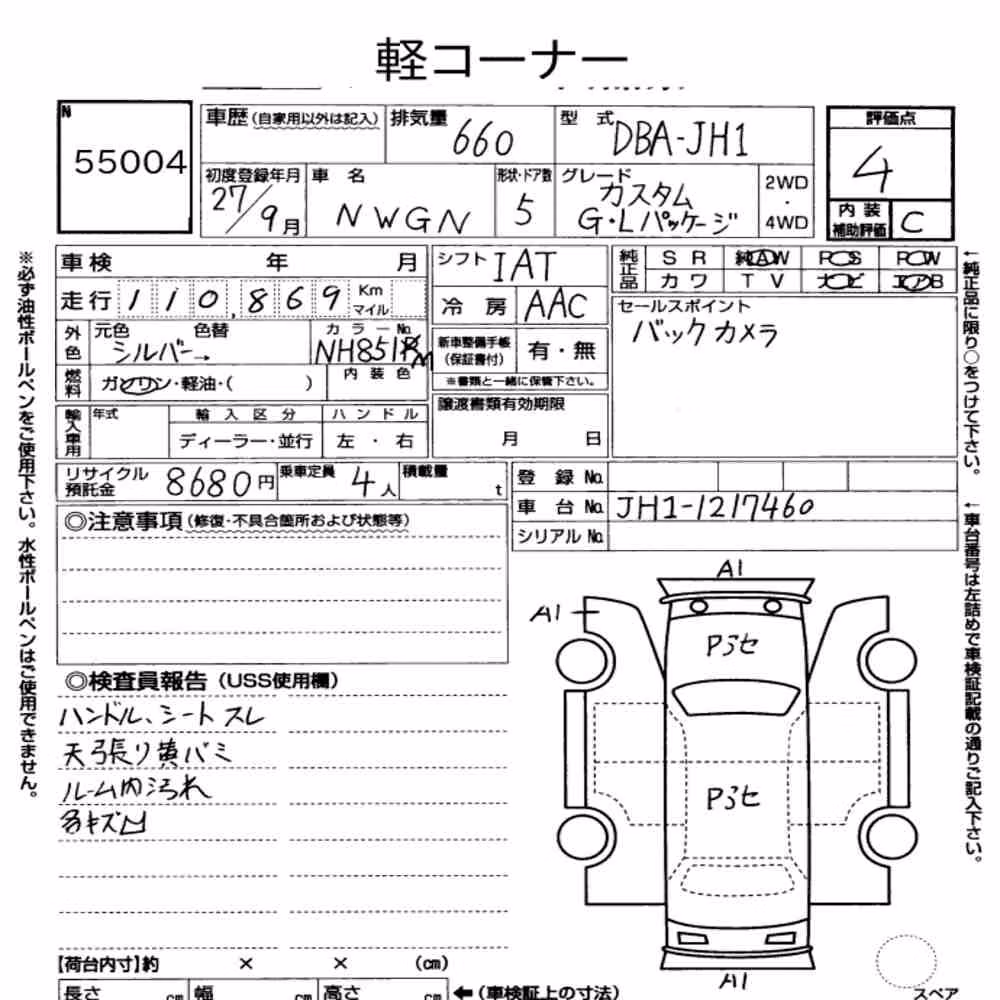 軽コーナー
N
55004
車歴(自家用以外は記入) 排気量 660 型 式 DBA-JH1
初度登録年月 27/9月 車 名 NWGN 形状・ドア数 5 グレード カスタム G・Lパッケージ 2WD・4WD
評価点
4
内装補助評価 C
車検 年 月
走行 110,869 Km マイル
外色 元色 シルバー→ 色替 カラーNo. NH851PM
燃料 ガソリン・軽油・( ) 内装色
輸入車用 年式 輸入区分 ハンドル
ディーラー・並行 左・右
シフト IAT
冷房 AAC
新車整備手帳(保証書付) 有・無
※書類と一緒に保管下さい。
譲渡書類有効期限
月 日
純正品 SR 純AW PS PW
カワ TV ナビ エアB
セールスポイント
バックカメラ
リサイクル預託金 8680円 乗車定員 4人 積載量 t
登録No.
車台No. JH1-1217460
シリアルNo.
◎注意事項(修復・不具合箇所および状態等)
◎検査員報告(USS使用欄)
ハンドル、シートスレ
天張り黄バミ
ルーム内汚れ
各キズ凹
A1
A1
Pうセ
Pうセ
A1
【荷台内寸】約 × × (cm)
長さ cm 幅 cm 高さ cm ←(車検証上の寸法)
スペア
※必ず油性ボールペンをご使用下さい。水性ボールペンはご使用できません。
←純正品に限り○をつけて下さい。
←車台番号は左詰めで車検証記載の通りご記入下さい。